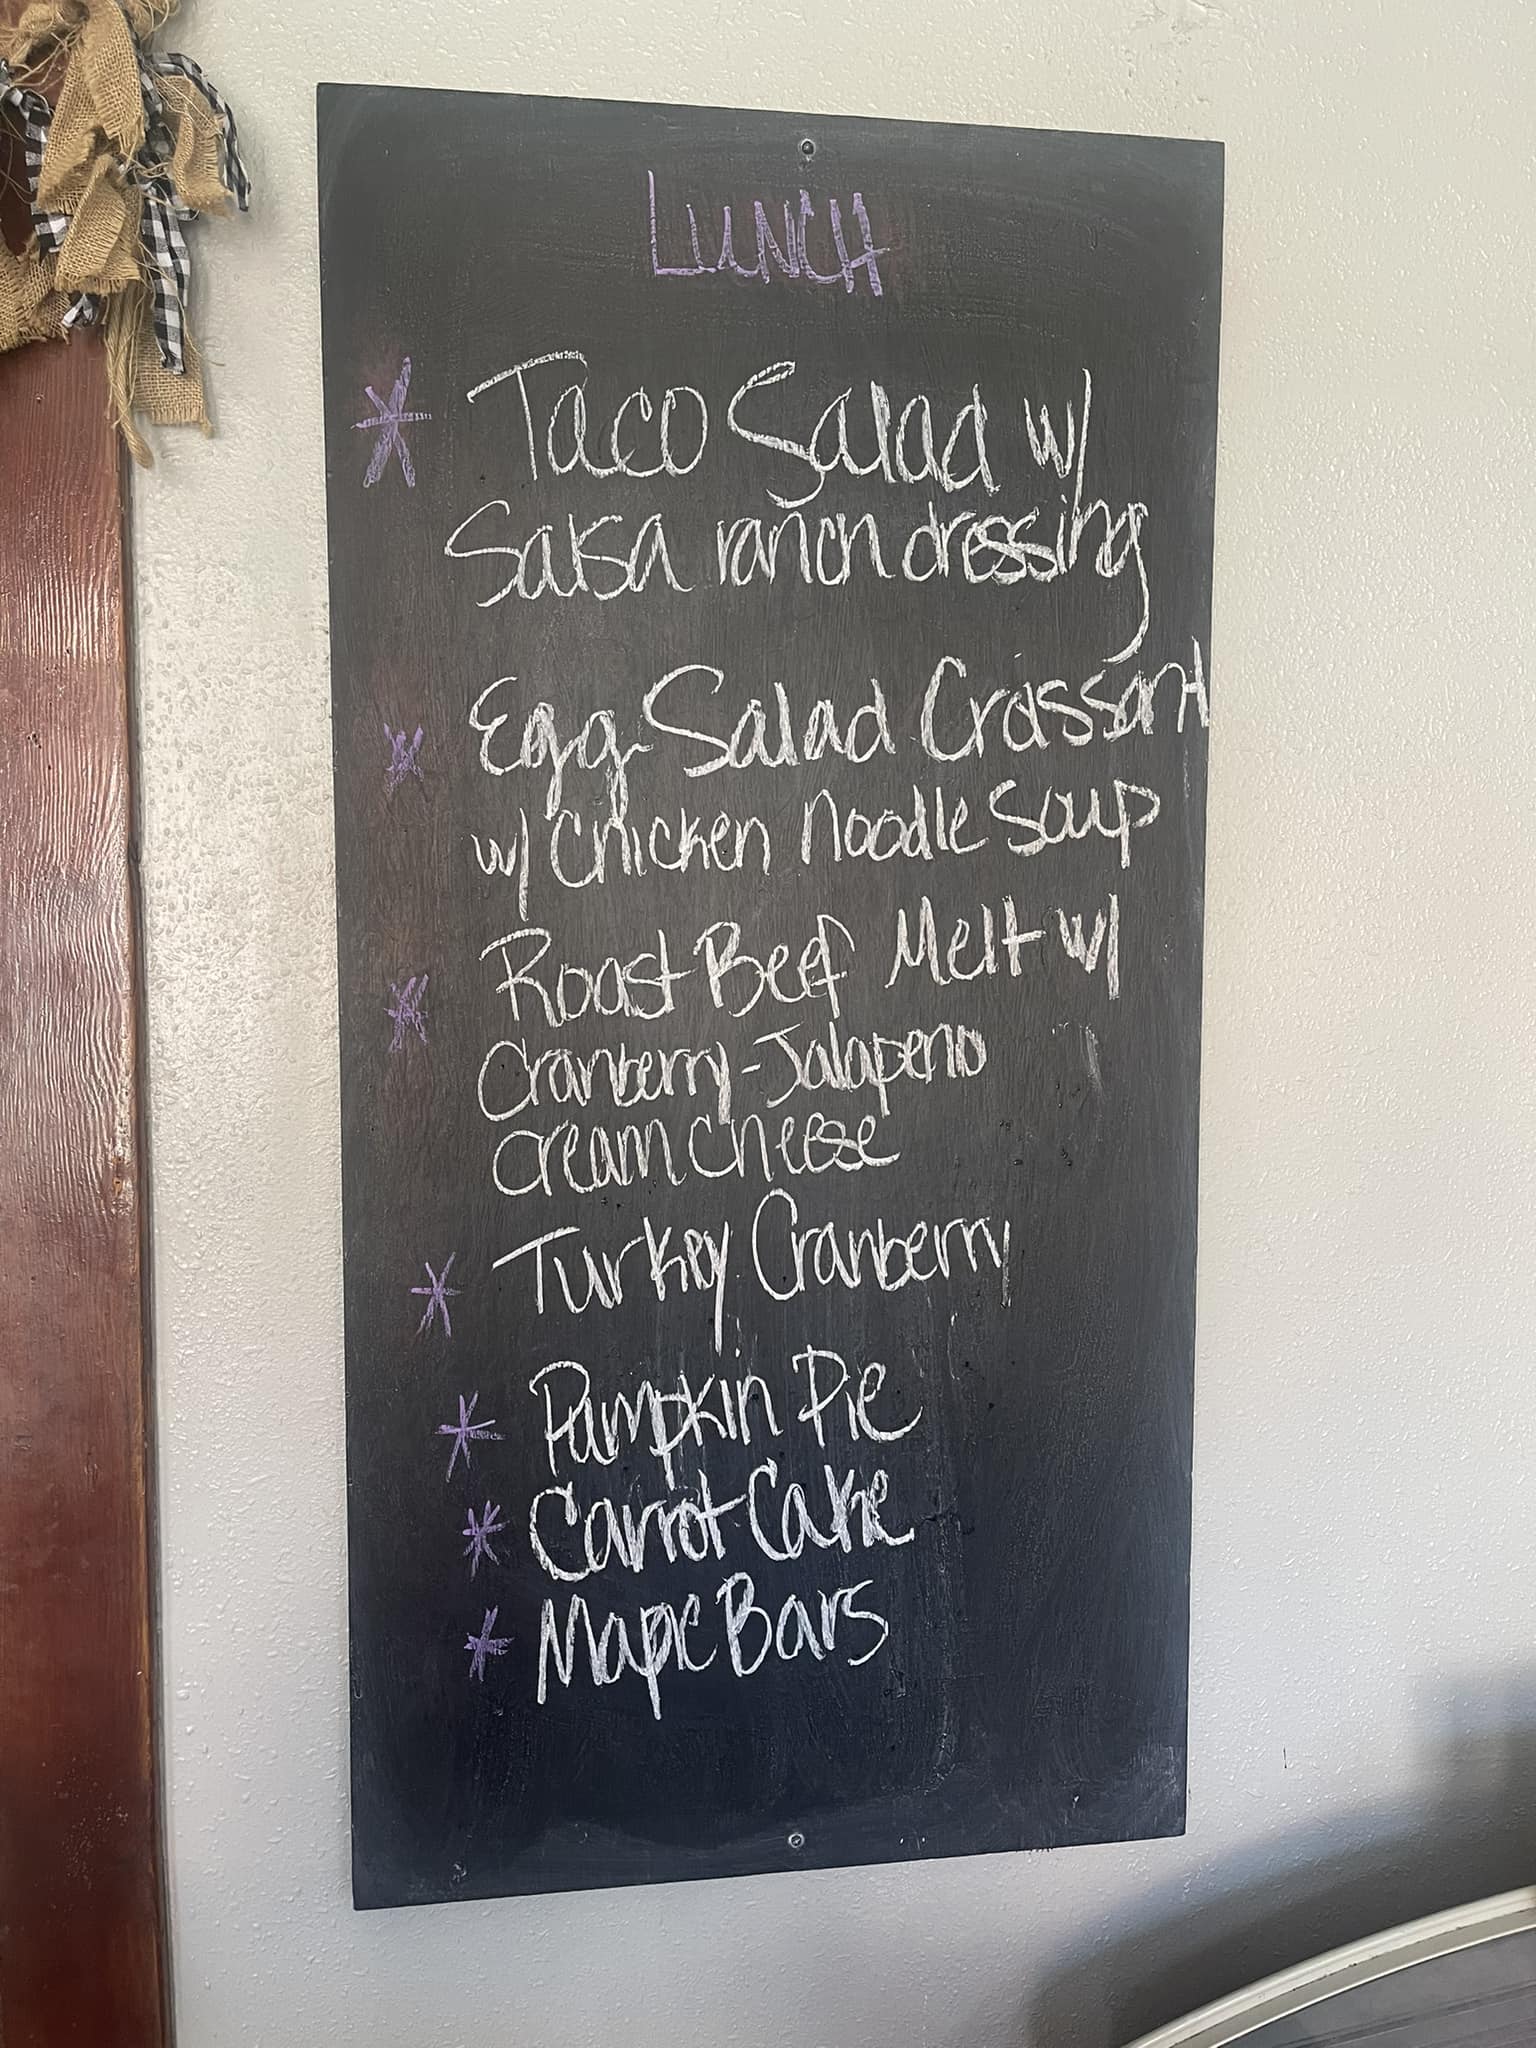 LUNCH
* Taco Salad w/
Salsa ranch dressing
* Egg Salad Croissant
w/ Chicken Noodle Soup
* Roast Beef Melt w/
Cranberry-Jalapeno
cream cheese
* Turkey Cranberry
* Pumpkin Pie
* Carrot Cake
* Maple Bars